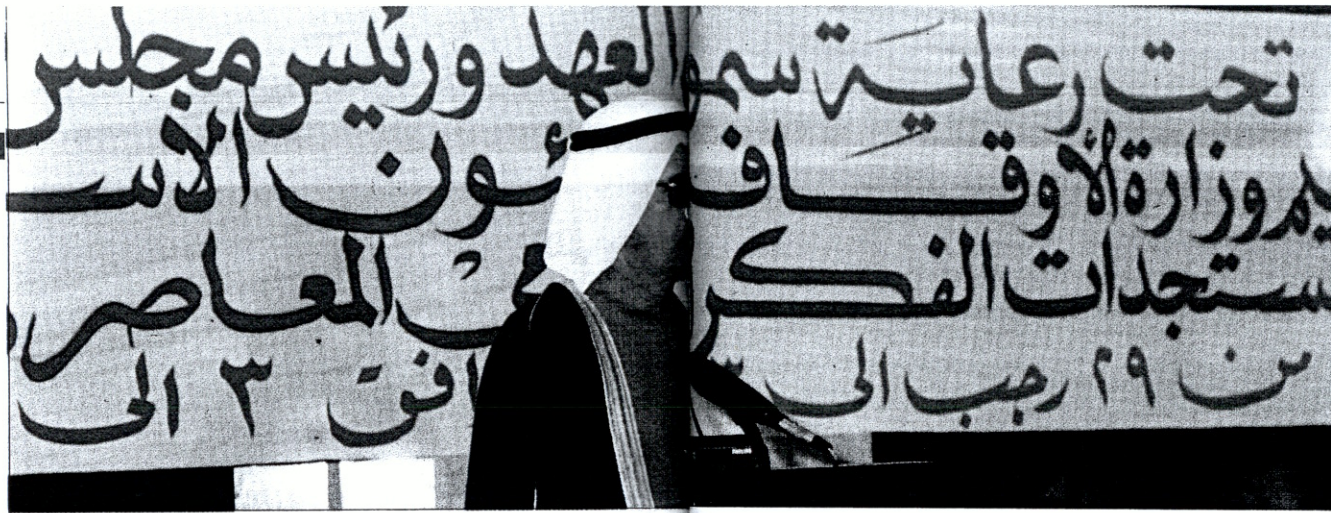 تحت رعاية سمو العهد ورئيس مجلس
وزارة الأوقاف ئون الأس
ستجدات الفكر المعاصر
من ٢٩ رجب الى افق ٣ الى